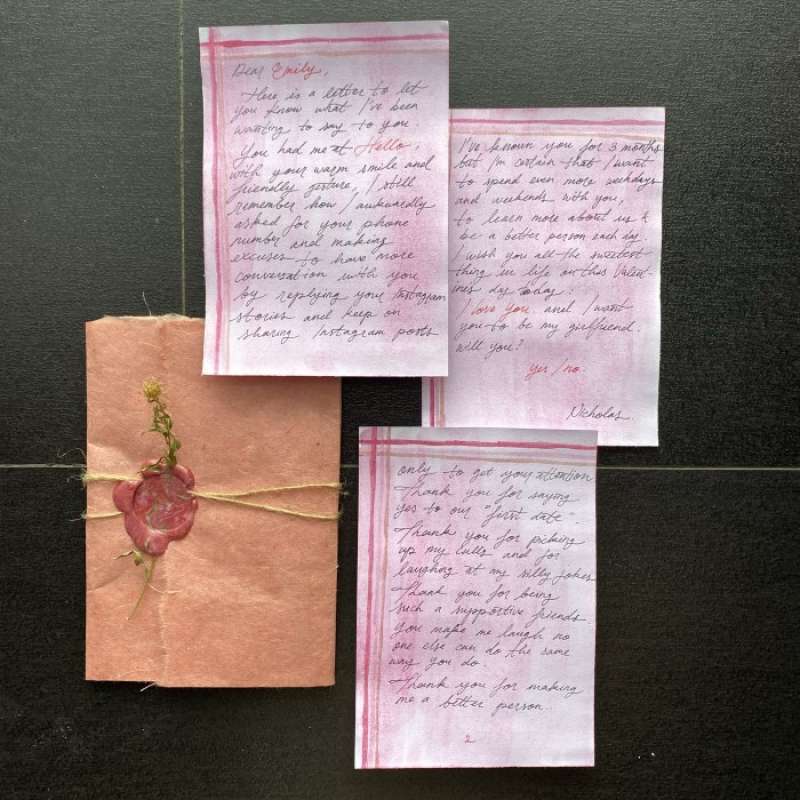 Dear Emily,
Here is a letter to let
you know what I've been
wanting to say to you.
You had me at Hello,
with your warm smile and
friendly gesture, I still
remember how I awkwardly
asked for your phone
number and making
excuses to have more
conversation with you
by replying your Instagram
stories and keep on
sharing Instagram posts
only to get your attention
Thank you for saying
yes to our "first date".
Thank you for picking
up my calls and for
laughing at my silly jokes
Thank you for being
such a supportive friends.
You make me laugh no
one else can do the same
way you do.
Thank you for making
me a better person..
2
I've known you for 3 months
but I'm certain that I want
to spend even more weekdays
and weekends with you,
to learn more about us &
be a better person each day.
I wish you all the sweetest
thing in life on this Valent-
ines day today.
I love you. and I want
you to be my girlfriend.
will you?
yes / no.
Nicholas.